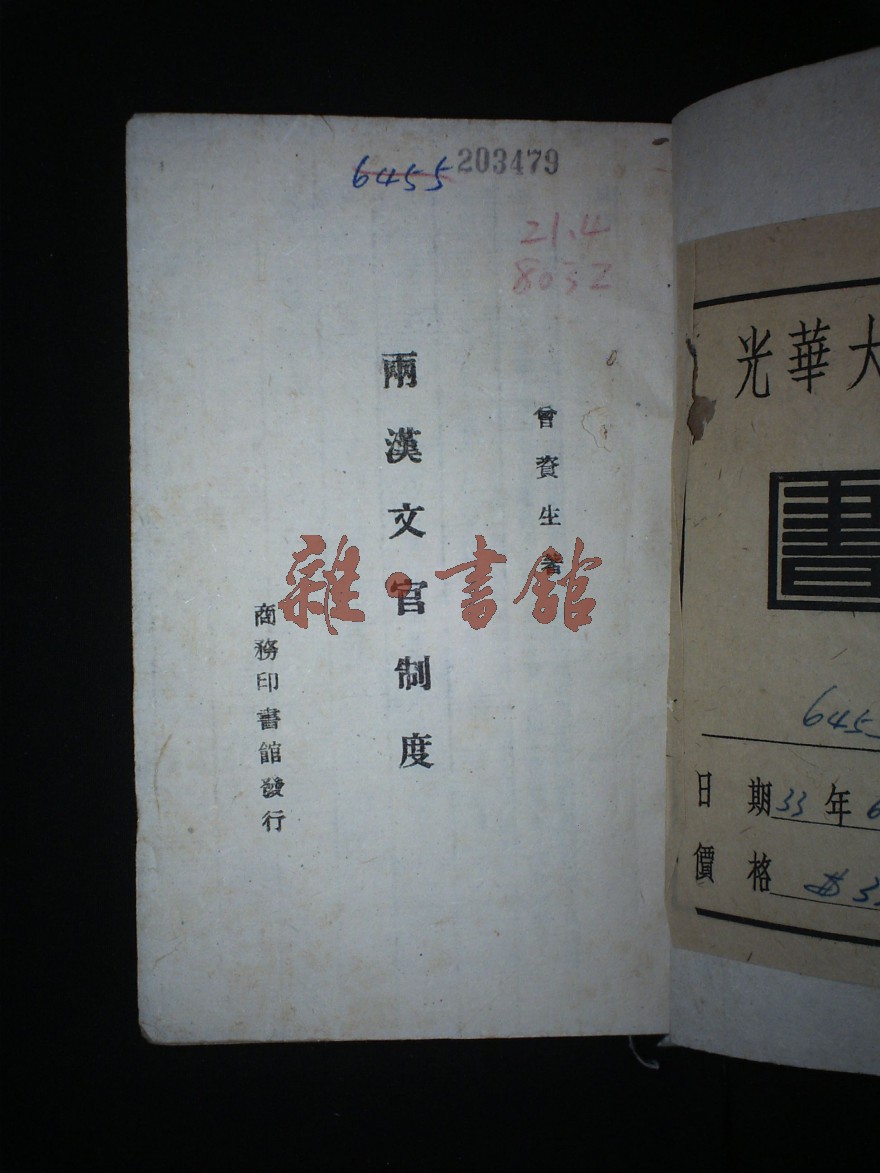 6455 203479
21.4
8032
曾資生著
兩漢文官制度
商務印書館發行
雜·書館
光華大
書
6455
日期33年6
價格